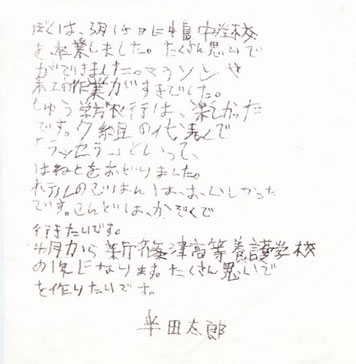 ぼくは、3月15日に幌中学校
を卒業しました。たくさん思いで
ができました。マラソンや
木工の作業がすきでした。
しゅう学旅行は、楽しかった
です。夕組の代表で
「ラッセラー」といって、
はねとをおどりました。
ホテルのごはんは、おいしかった
です。こんどは、かぞくで
行きたいです。
4月から新篠津高等養護学校
の1年になります。たくさん思いで
を作りたいです。
半田太郎